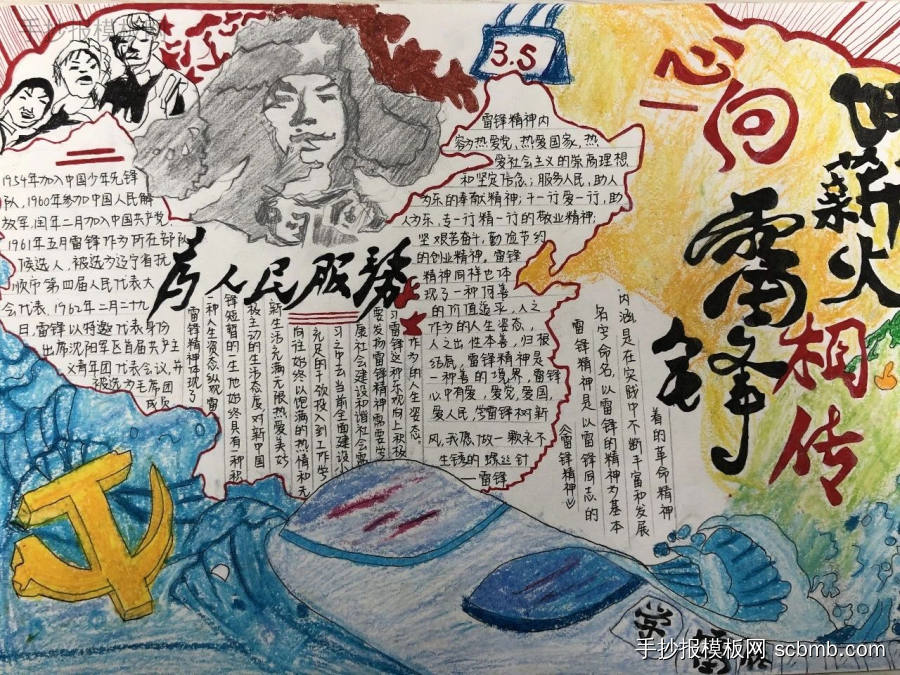 手抄报模板网
3.5
心向
雷锋
薪火
相传
为人民服务
1954年加入中国少年先锋
队，1960年参加中国人民解
放军，同年二月加入中国共产党
1961年五月雷锋作为所在部队
候选人，被选为辽宁省抚
顺市第四届人民代表大
会代表。1962年二月十九
日，雷锋以特邀代表身份
出席沈阳军区首届共产主
义青年团代表会议，并
被选为主席团
成员
雷锋精神内
容为热爱党，热爱国家，热
爱社会主义的崇高理想
和坚定信念；服务人民，助人
为乐的奉献精神；干一行爱一行，
人为乐，专一行精一行的敬业精神；
坚艰苦奋斗，勤俭节约
的创业精神。雷锋
精神同样也体
现了一种何善
的价值追求，人之
作为的人生姿态，
人之出性本善，归根
结底，雷锋精神是
一种善的境界，雷锋
心中有爱，爱党，爱国，
爱人民，学雷锋树新
风，我愿做一颗永不
生锈的螺丝钉
——雷锋
雷锋精神体现了
一种人生资态纵观雷
锋短暂的一生他始终具有一种积
极主动的生活态度对新中国
新生活充满无限热爱美好
向往始终以饱满的热情和
充足的干劲投入到工作学
习之中去当前全面建设小
康社会建设和谐社会需
要发扬雷锋精神需要学
习雷锋这一种乐观向上积极
作为的人生姿态。
《雷锋精神》
雷锋精神是以雷锋同志的
名字命名，以雷锋的精神为基本
内涵是在实践中不断丰富和发展
着的革命精神
手抄报模板网 scbmb.com